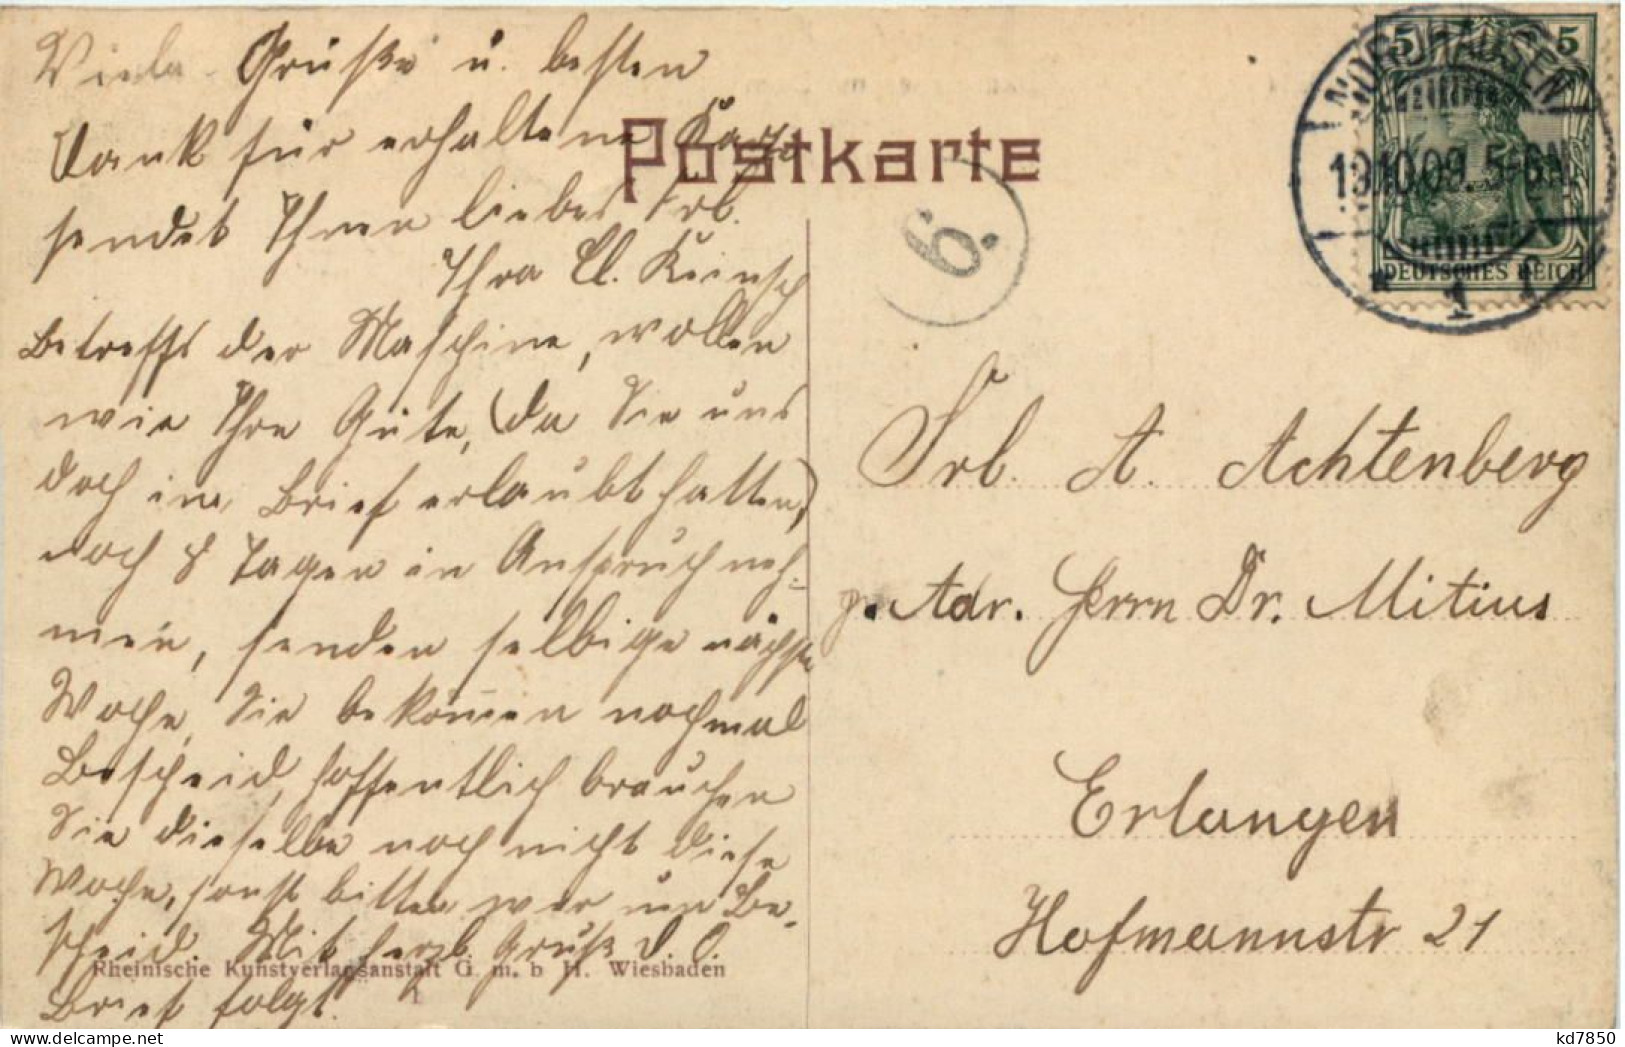 Viele Grüße u. besten
Dank für erhaltene Karte
sendet Ihnen liebes Frl.
Ihre Cl. Keinsch
Betreffs der Maschine, wollen
wir Ihre Güte, (da Sie uns
doch im Brief erlaubt hatten,)
noch 8 Tagen in Anspruch neh-
men, senden selbige nächste
Woche, Sie bekommen nochmal
Bescheid, hoffentlich brauchen
Sie dieselbe noch nicht diese
Woche, sonst bitten wir um Be-
scheid. Mit herzl. Gruß d. O.
Brief folgt.
Rheinische Kunstverlagsanstalt G. m. b H. Wiesbaden
Postkarte
6.
5 5
DEUTSCHES REICH
NORDHAUSEN
13.10.09. 5-6N
* 1 c
Frl. A. Achtenberg
p. Adr. Herrn Dr. Mitius
Erlangen
Hofmannstr 21
kd7850